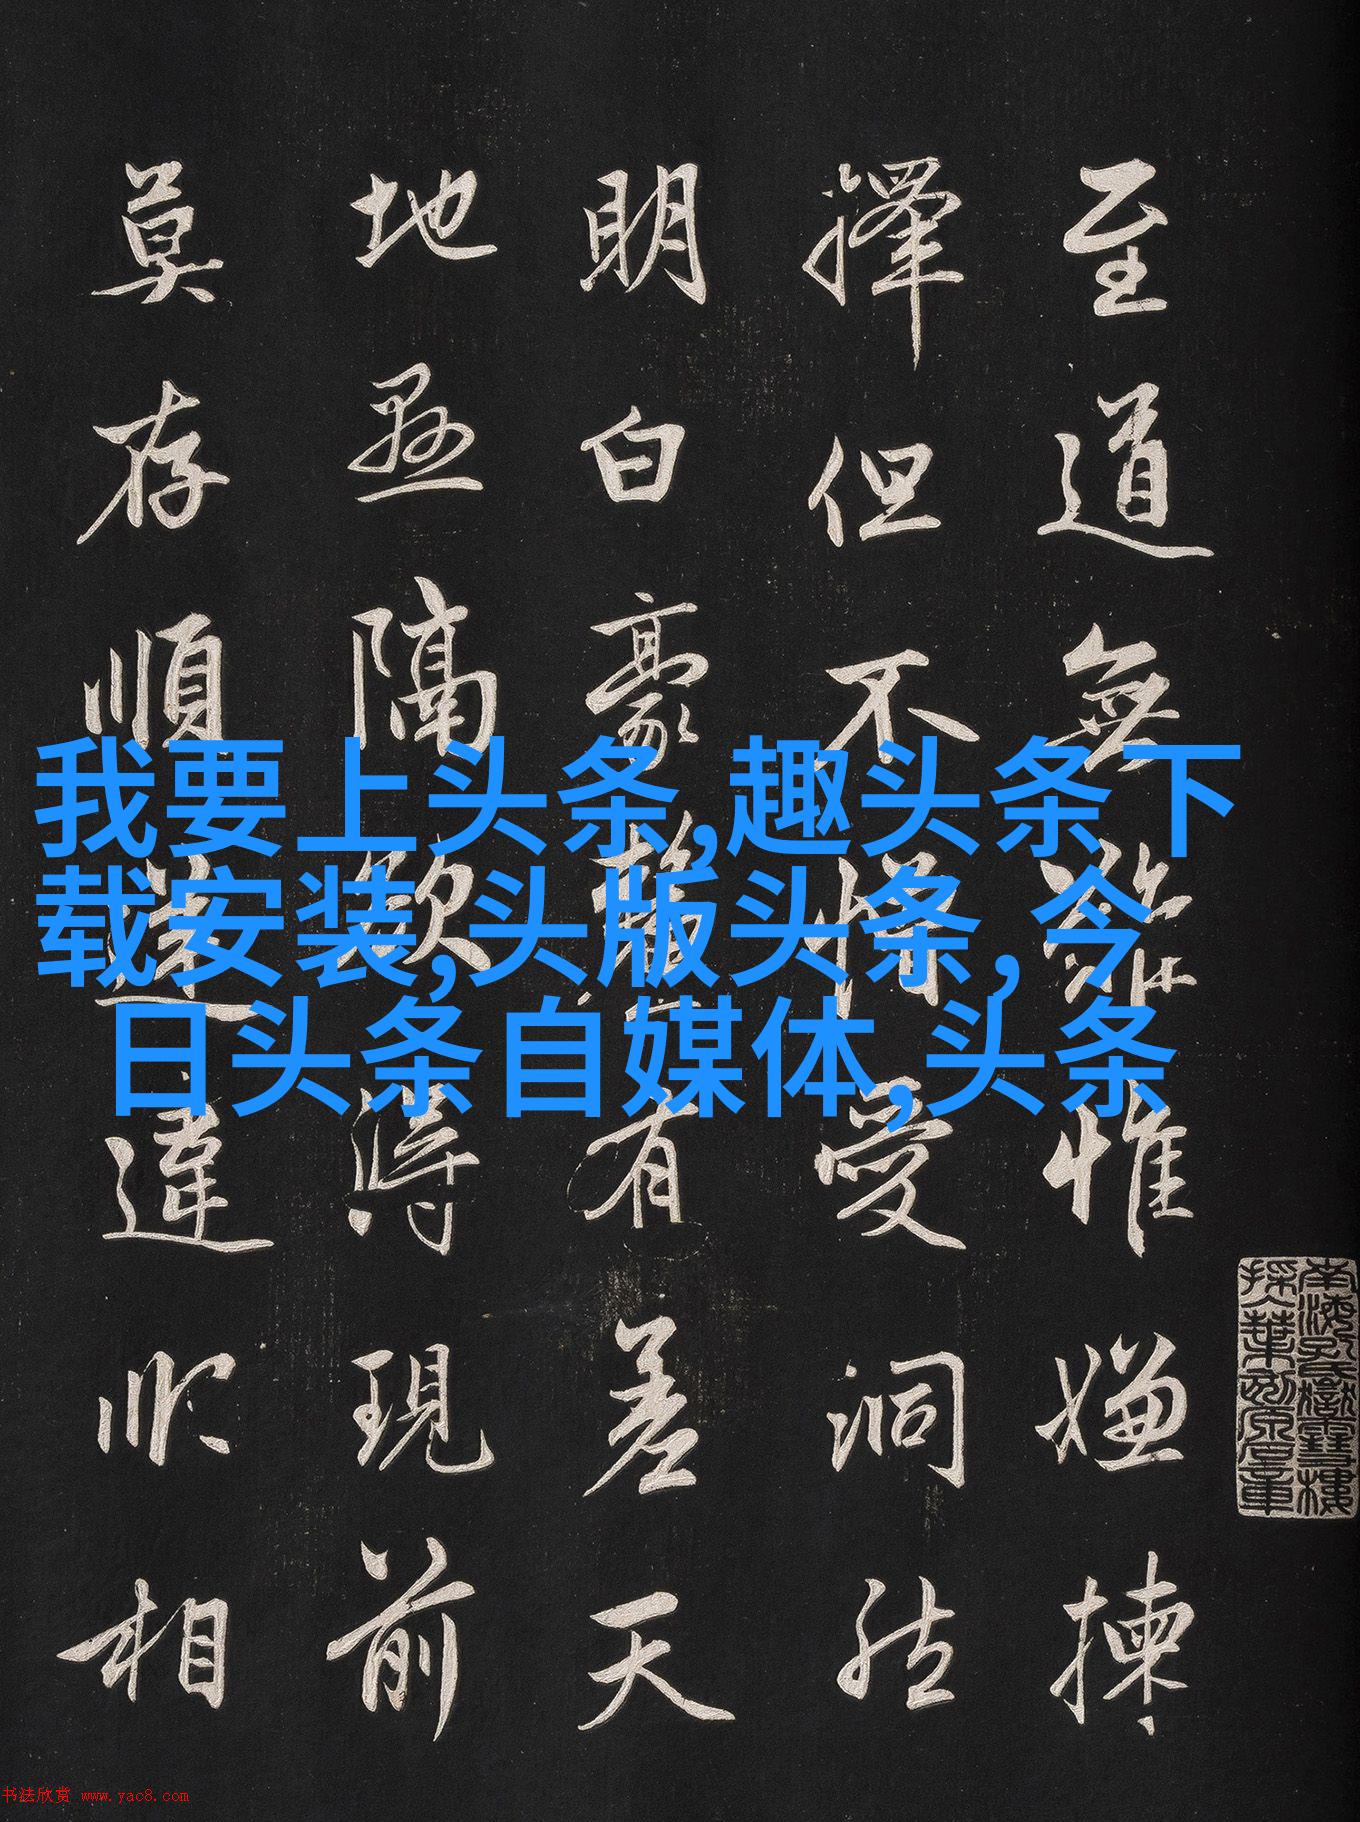 至道無難惟嫌揀
擇但不憎愛洞然
明白豪釐有差天
地懸隔欲得現前
莫存順逆違順相
我要上头条,趣头条下
载安装,头版头条,今
日头条自媒体,头条
南海孔氏嶽雪樓
书法欣赏 www.yac8.com